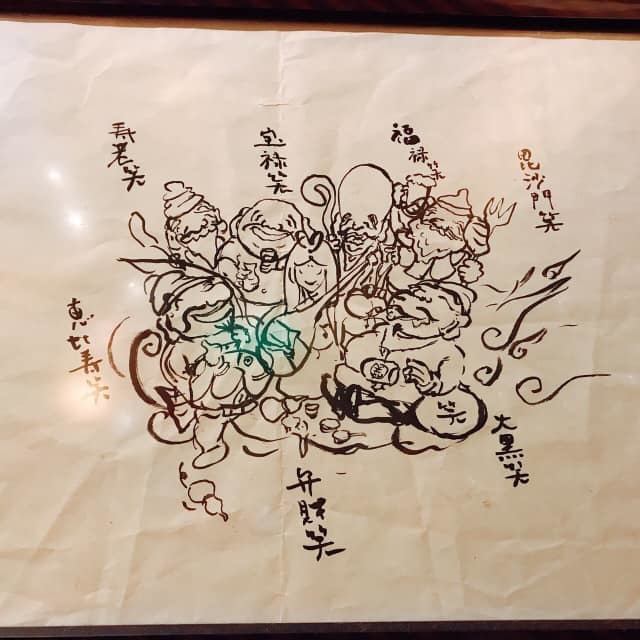 毘沙門笑
福禄笑
宝禄笑
寿老笑
恵比寿笑
大黒笑
弁財笑
笑